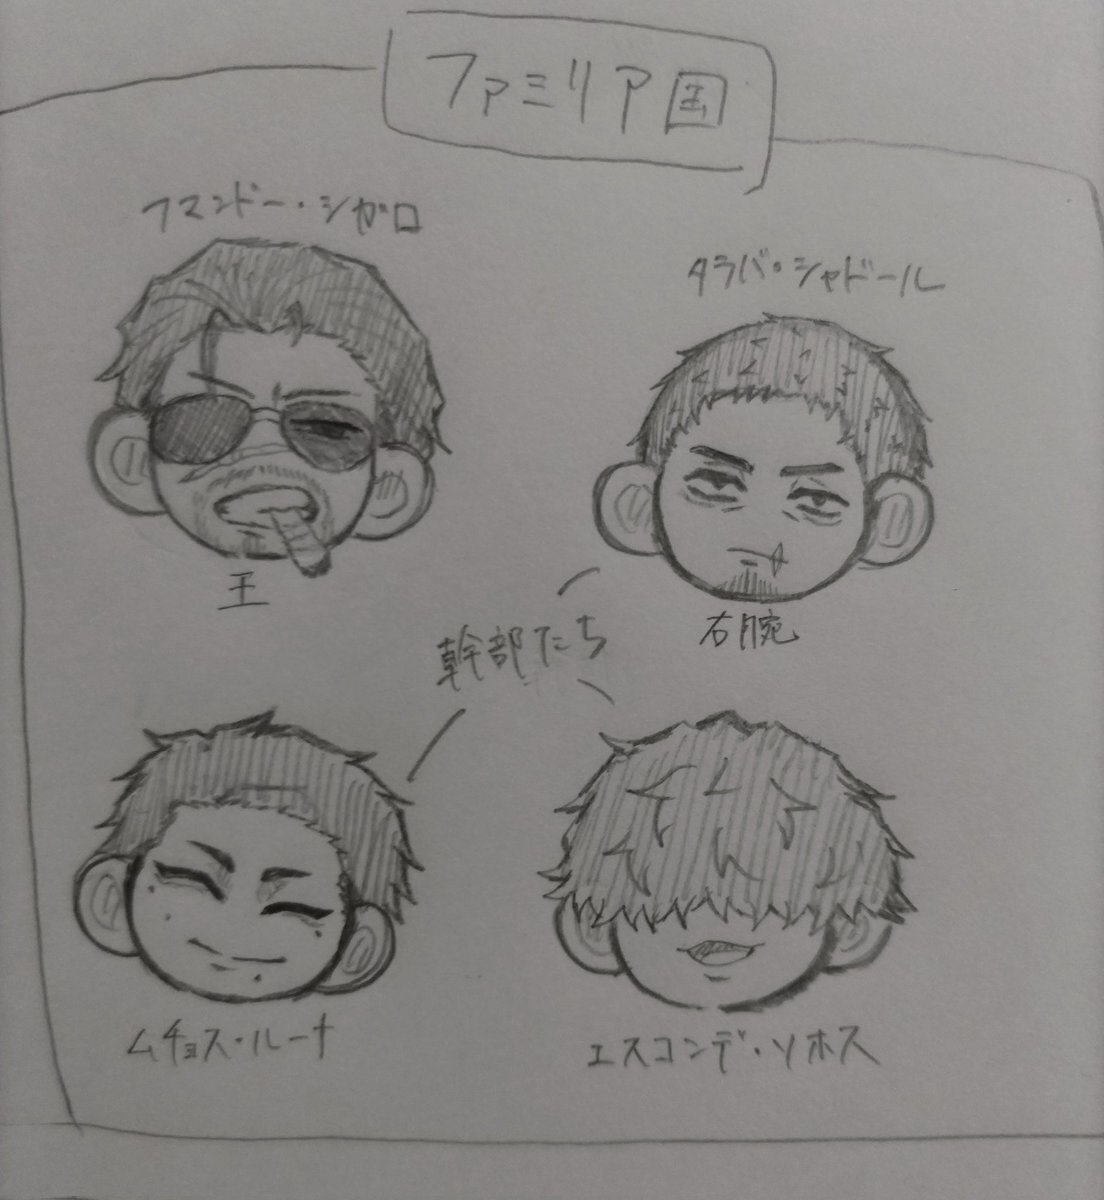 ファミリア国
フマンドー・シガロ
タラバ・シャドール
王
右腕
幹部たち
ムチョス・ルーナ
エスコンデ・ソホス